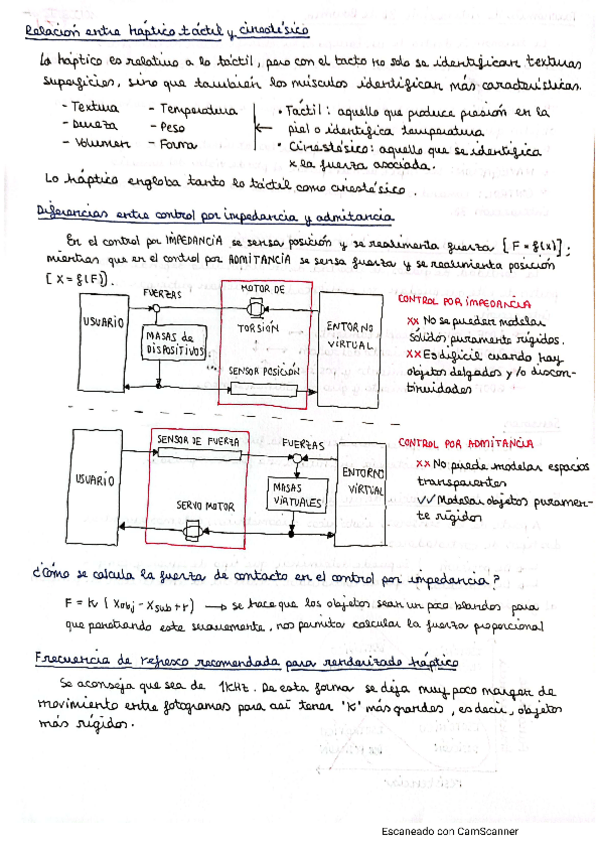 Relación entre háptico táctil y cinestésico
Lo háptico es relativo a lo táctil, pero con el tacto no solo se identifican texturas
superficies, sino que también los músculos identifican más características.
- Textura - Temperatura
- Dureza - Peso
- Volumen - Forma
• Táctil: aquello que produce presión en la
piel o identifica temperatura
• Cinestésico: aquello que se identifica
x la fuerza asociada.
Lo háptico engloba tanto lo táctil como cinestésico.
Diferencias entre control por impedancia y admitancia
En el control por IMPEDANCIA se sensa posición y se realimenta fuerza [F = f(x)];
mientras que en el control por ADMITANCIA se sensa fuerza y se realimenta posición
[X = f(F)].
USUARIO
FUERZAS
MASAS de
DISPOSITIVOS
MOTOR DE
TORSIÓN
SENSOR POSICIÓN
ENTORNO
VIRTUAL
CONTROL POR IMPEDANCIA
xx No se pueden modelar
sólidos puramente rígidos.
xx Es difícil cuando hay
objetos delgados y/o discon-
tinuidades
USUARIO
SENSOR DE FUERZA
SERVO MOTOR
FUERZAS
MASAS
VIRTUALES
ENTORNO
VIRTUAL
CONTROL POR ADMITANCIA
xx No puede modelar espacios
transparentes
✓✓ Modelar objetos puramen-
te rígidos
¿Cómo se calcula la fuerza de contacto en el control por impedancia?
F = K (Xobj - Xsub+r) → se hace que los objetos sean un poco blandos para
que penetrando este suavemente, nos permita calcular la fuerza proporcional
Frecuencia de refresco recomendada para renderizado háptico
Se aconseja que sea de 1KHz. De esta forma se deja muy poco margen de
movimiento entre fotogramas para así tener "K" más grandes, es decir, objetos
más rígidos.
Escaneado con CamScanner